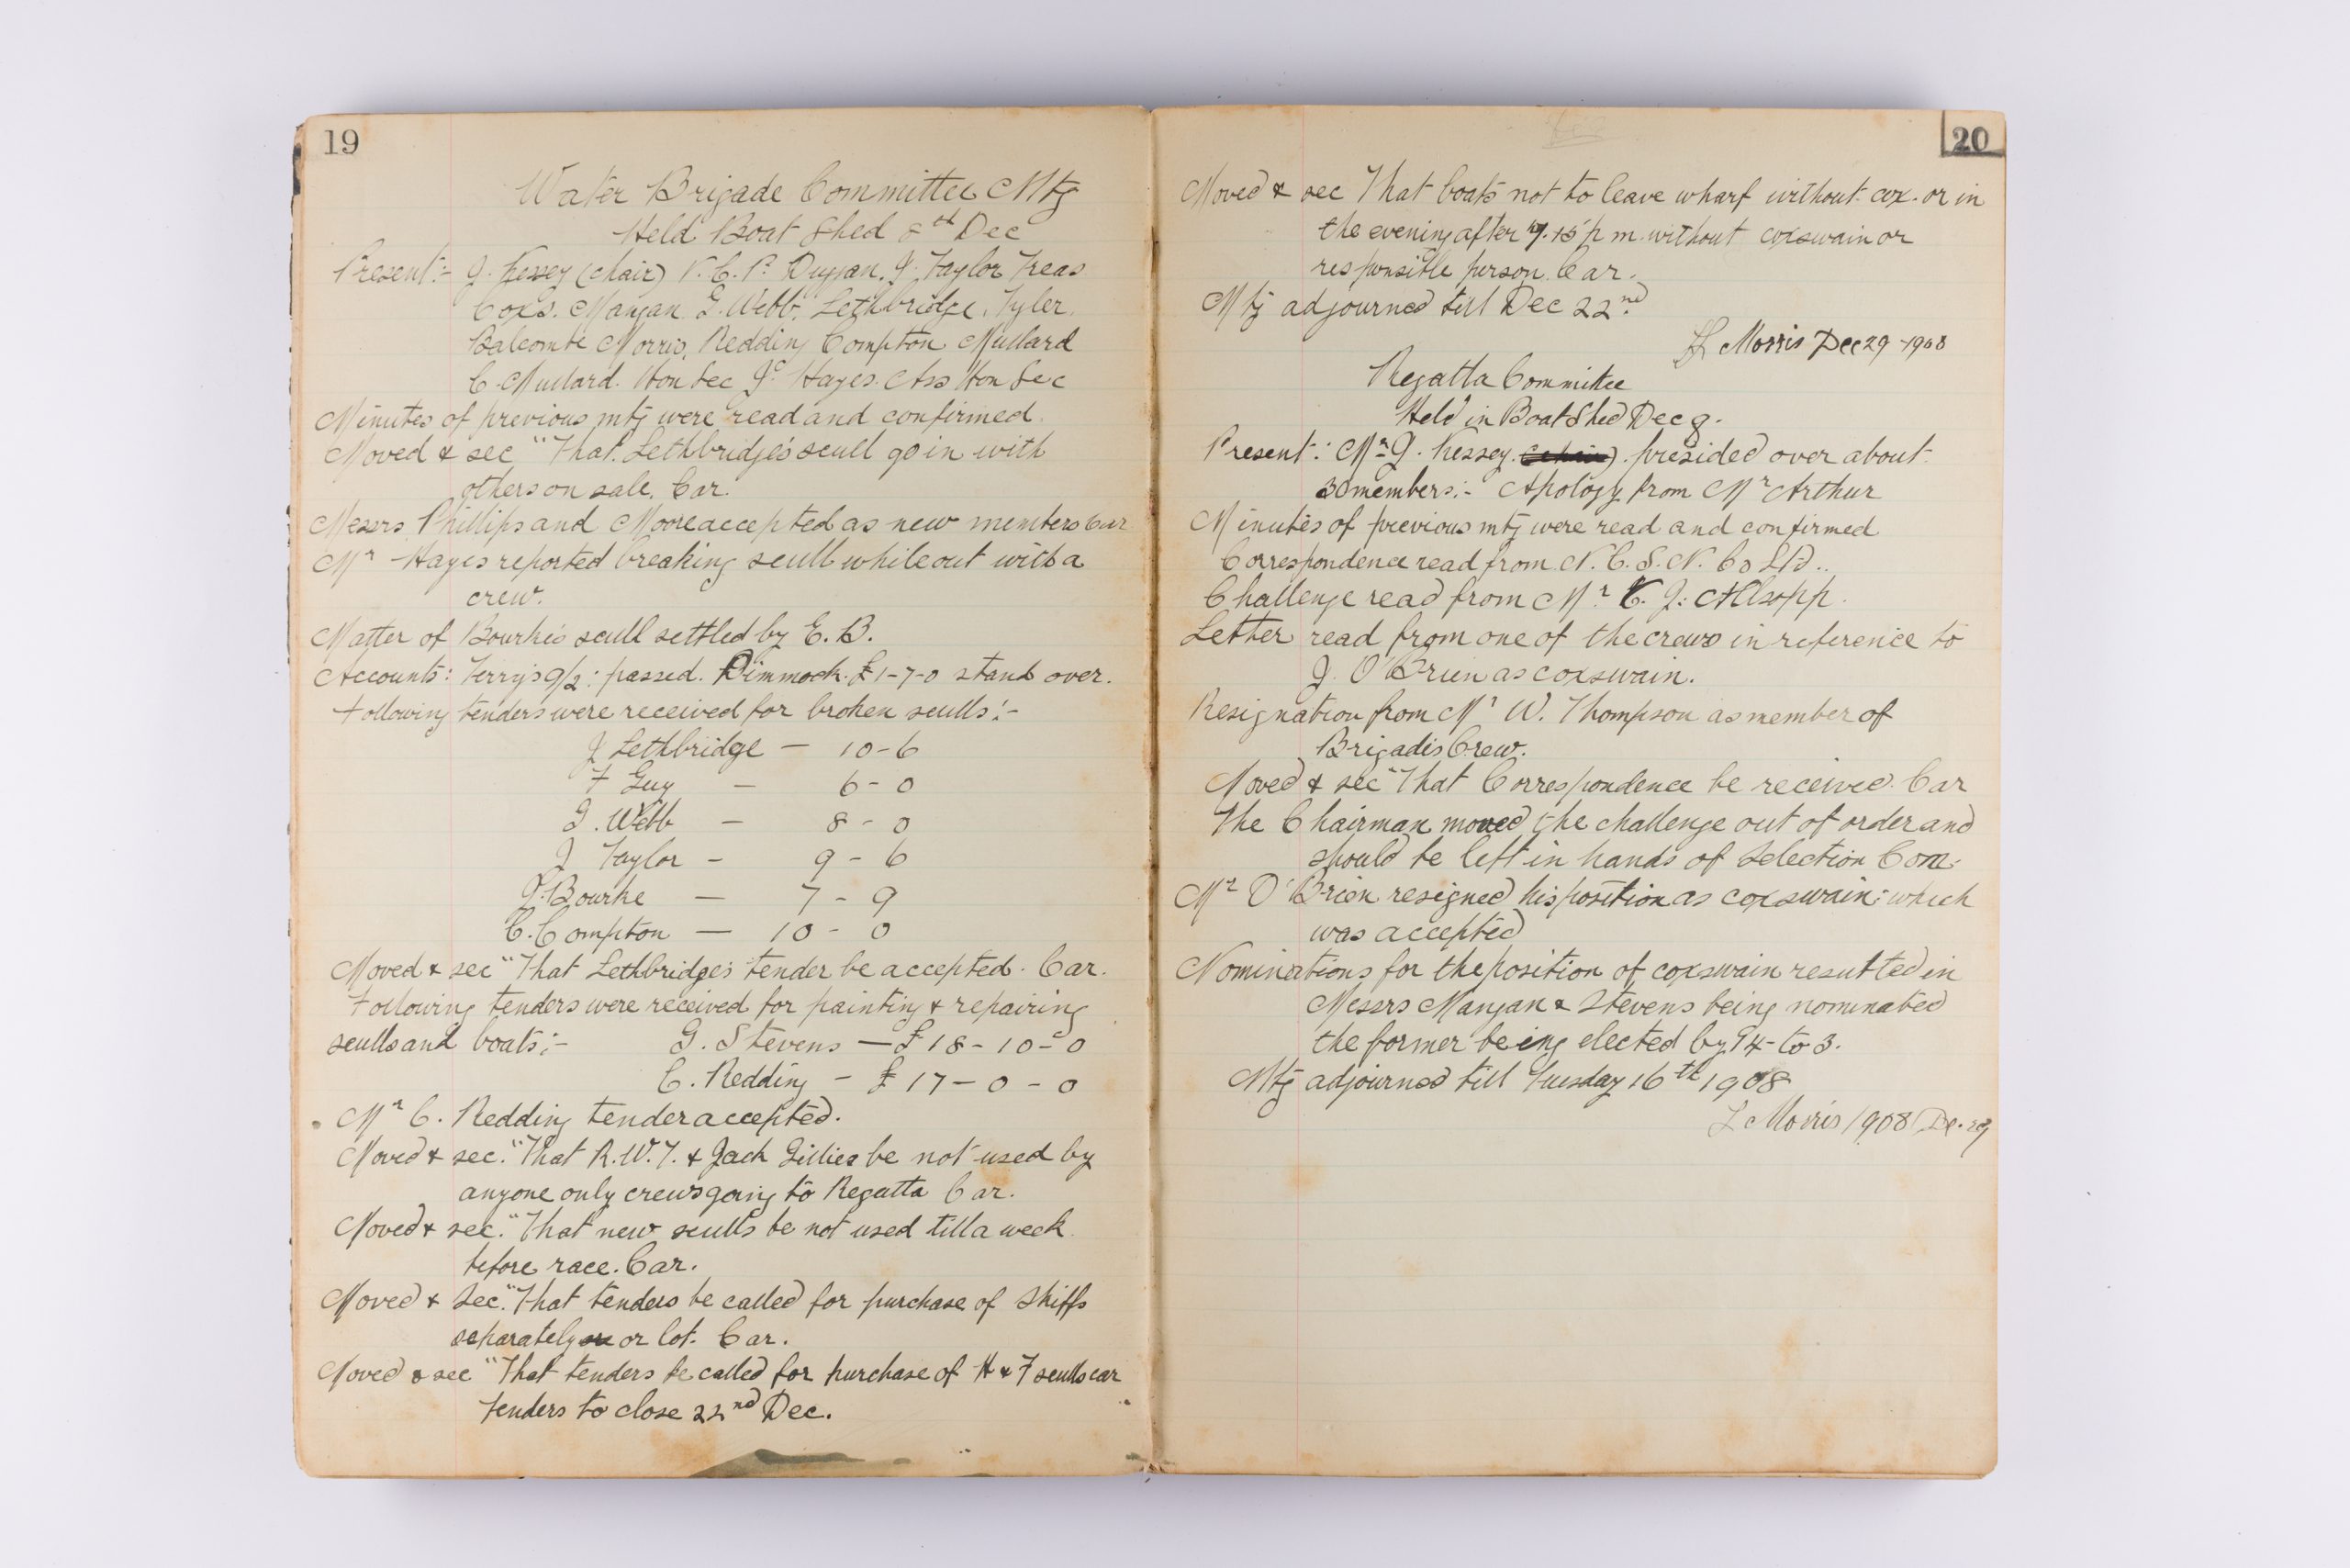 19
Water Brigade Committee Mtg
Held Boat Shed 8th Dec
Present:- J. Hessey (chair) V.C.P. Duggan. J. Taylor Treas
Coxs. Mangan G. Webb. Lethbridge, Tyler.
Balcombe Morris, Redding Compton Mullard
C. Mullard. Hon Sec Jc Hayes. Ass Hon Sec
Minutes of previous mtg were read and confirmed.
Moved & sec "That Lethbridge's scull go in with
others on sale. Car.
Messrs Phillips and Moore accepted as new members Car
Mr Hayes reported breaking scull while out with a
crew.
Matter of Bourke's scull settled by E.B.
Accounts: Terry's 9/2: passed. Dimmock. £1-7-0 stand over.
Following tenders were received for broken sculls:-
J Lethbridge — 10-6
F Guy — 6-0
G. Webb — 8-0
J Taylor - 9-6
J. Bourke — 7-9
C. Compton — 10-0
Moved & sec "That Lethbridge's tender be accepted. Car.
Following tenders were received for painting & repairing
sculls and boats:- G. Stevens — £18-10-0
C. Redding - £17-0-0
Mr C. Redding tender accepted.
Moved & sec. "That R.W.T. & Jack Gillies be not used by
anyone only crews going to Regatta Car.
Moved & sec. "That new sculls be not used till a week
before race. Car.
Moved & Sec. "That tenders be called for purchase of Skiffs
separately or or lot. Car.
Moved & sec "That tenders be called for purchase of H & F sculls car
tenders to close 22nd Dec.
20
Moved & sec That boats not to leave wharf without cox. or in
the evening after 7.15 p m. without coxswain or
responsible person. Car.
Mtg adjourned till Dec 22nd.
L Morris Dec 29-1908
Regatta Committee
Held in Boat Shed Dec 8.
Present: Mr J. Hessey (chair). presided over about
30 members:- Apology from Mr Arthur
Minutes of previous mtg were read and confirmed
Correspondence read from N.C.S.N. Co Ltd..
Challenge read from Mr. J. Allsopp.
Letter read from one of the crews in reference to
J. O'Brien as coxswain.
Resignation from Mr W. Thompson as member of
Brigades Crew.
Moved & sec "That Correspondence be received. Car
The Chairman moved the challenge out of order and
should be left in hands of Selection Com.
Mr O'Brien resigned his position as coxswain: which
was accepted
Nominations for the position of coxswain resulted in
Messrs Mangan & Stevens being nominated
the former being elected by 14 to 3.
Mtg adjourned till Tuesday 16th 1908
L Morris 1908 De. 29